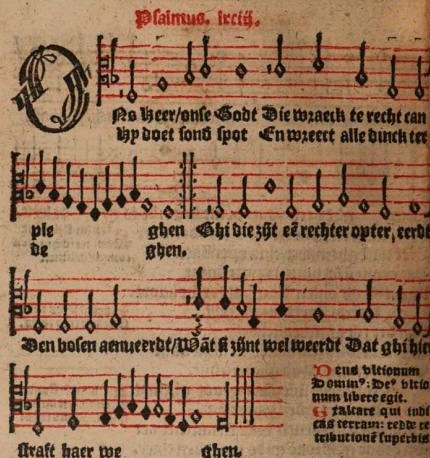 Psalmus. xciij.
ONs Heer/onse Godt Die wraeck te recht can
Hy doet sond spot En wreect alle dinck ter
ple ghen Ghi die zijt eē rechter opter, eerdt
de ghen.
Den bosen aenueerdt/Wāt si zijnt wel weerdt Dat ghi hie
straft haer we ghen.
Deus vltionum
Domin⁹: De⁹ vltio
num libere egit.
Exaltare qui iudi
cas terram: redde re
tributionē superbis